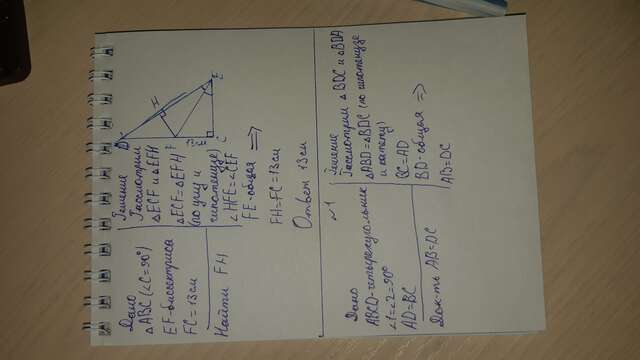 Дано
△ABC (∠C=90°)
EF-биссектриса
FC=13см
Найти FH
Решение
Рассмотрим
△ECF и △EFH
△ECF=△EFH
(по углу и
гипотенузе)
∠HFE=∠CEF
FE-общая =>
FH=FC=13см
Ответ 13см
D
H
E
F
13см
C
~1
Дано
ABCD-четырехугольник
∠1=∠2=90°
AD=BC
Док-ть AB=DC
Решение
Рассмотрим △BDC и △BDA
△ABD=△BDC (по гипотенузе
и катету)
BC=AD
BD-общая =>
AB=DC